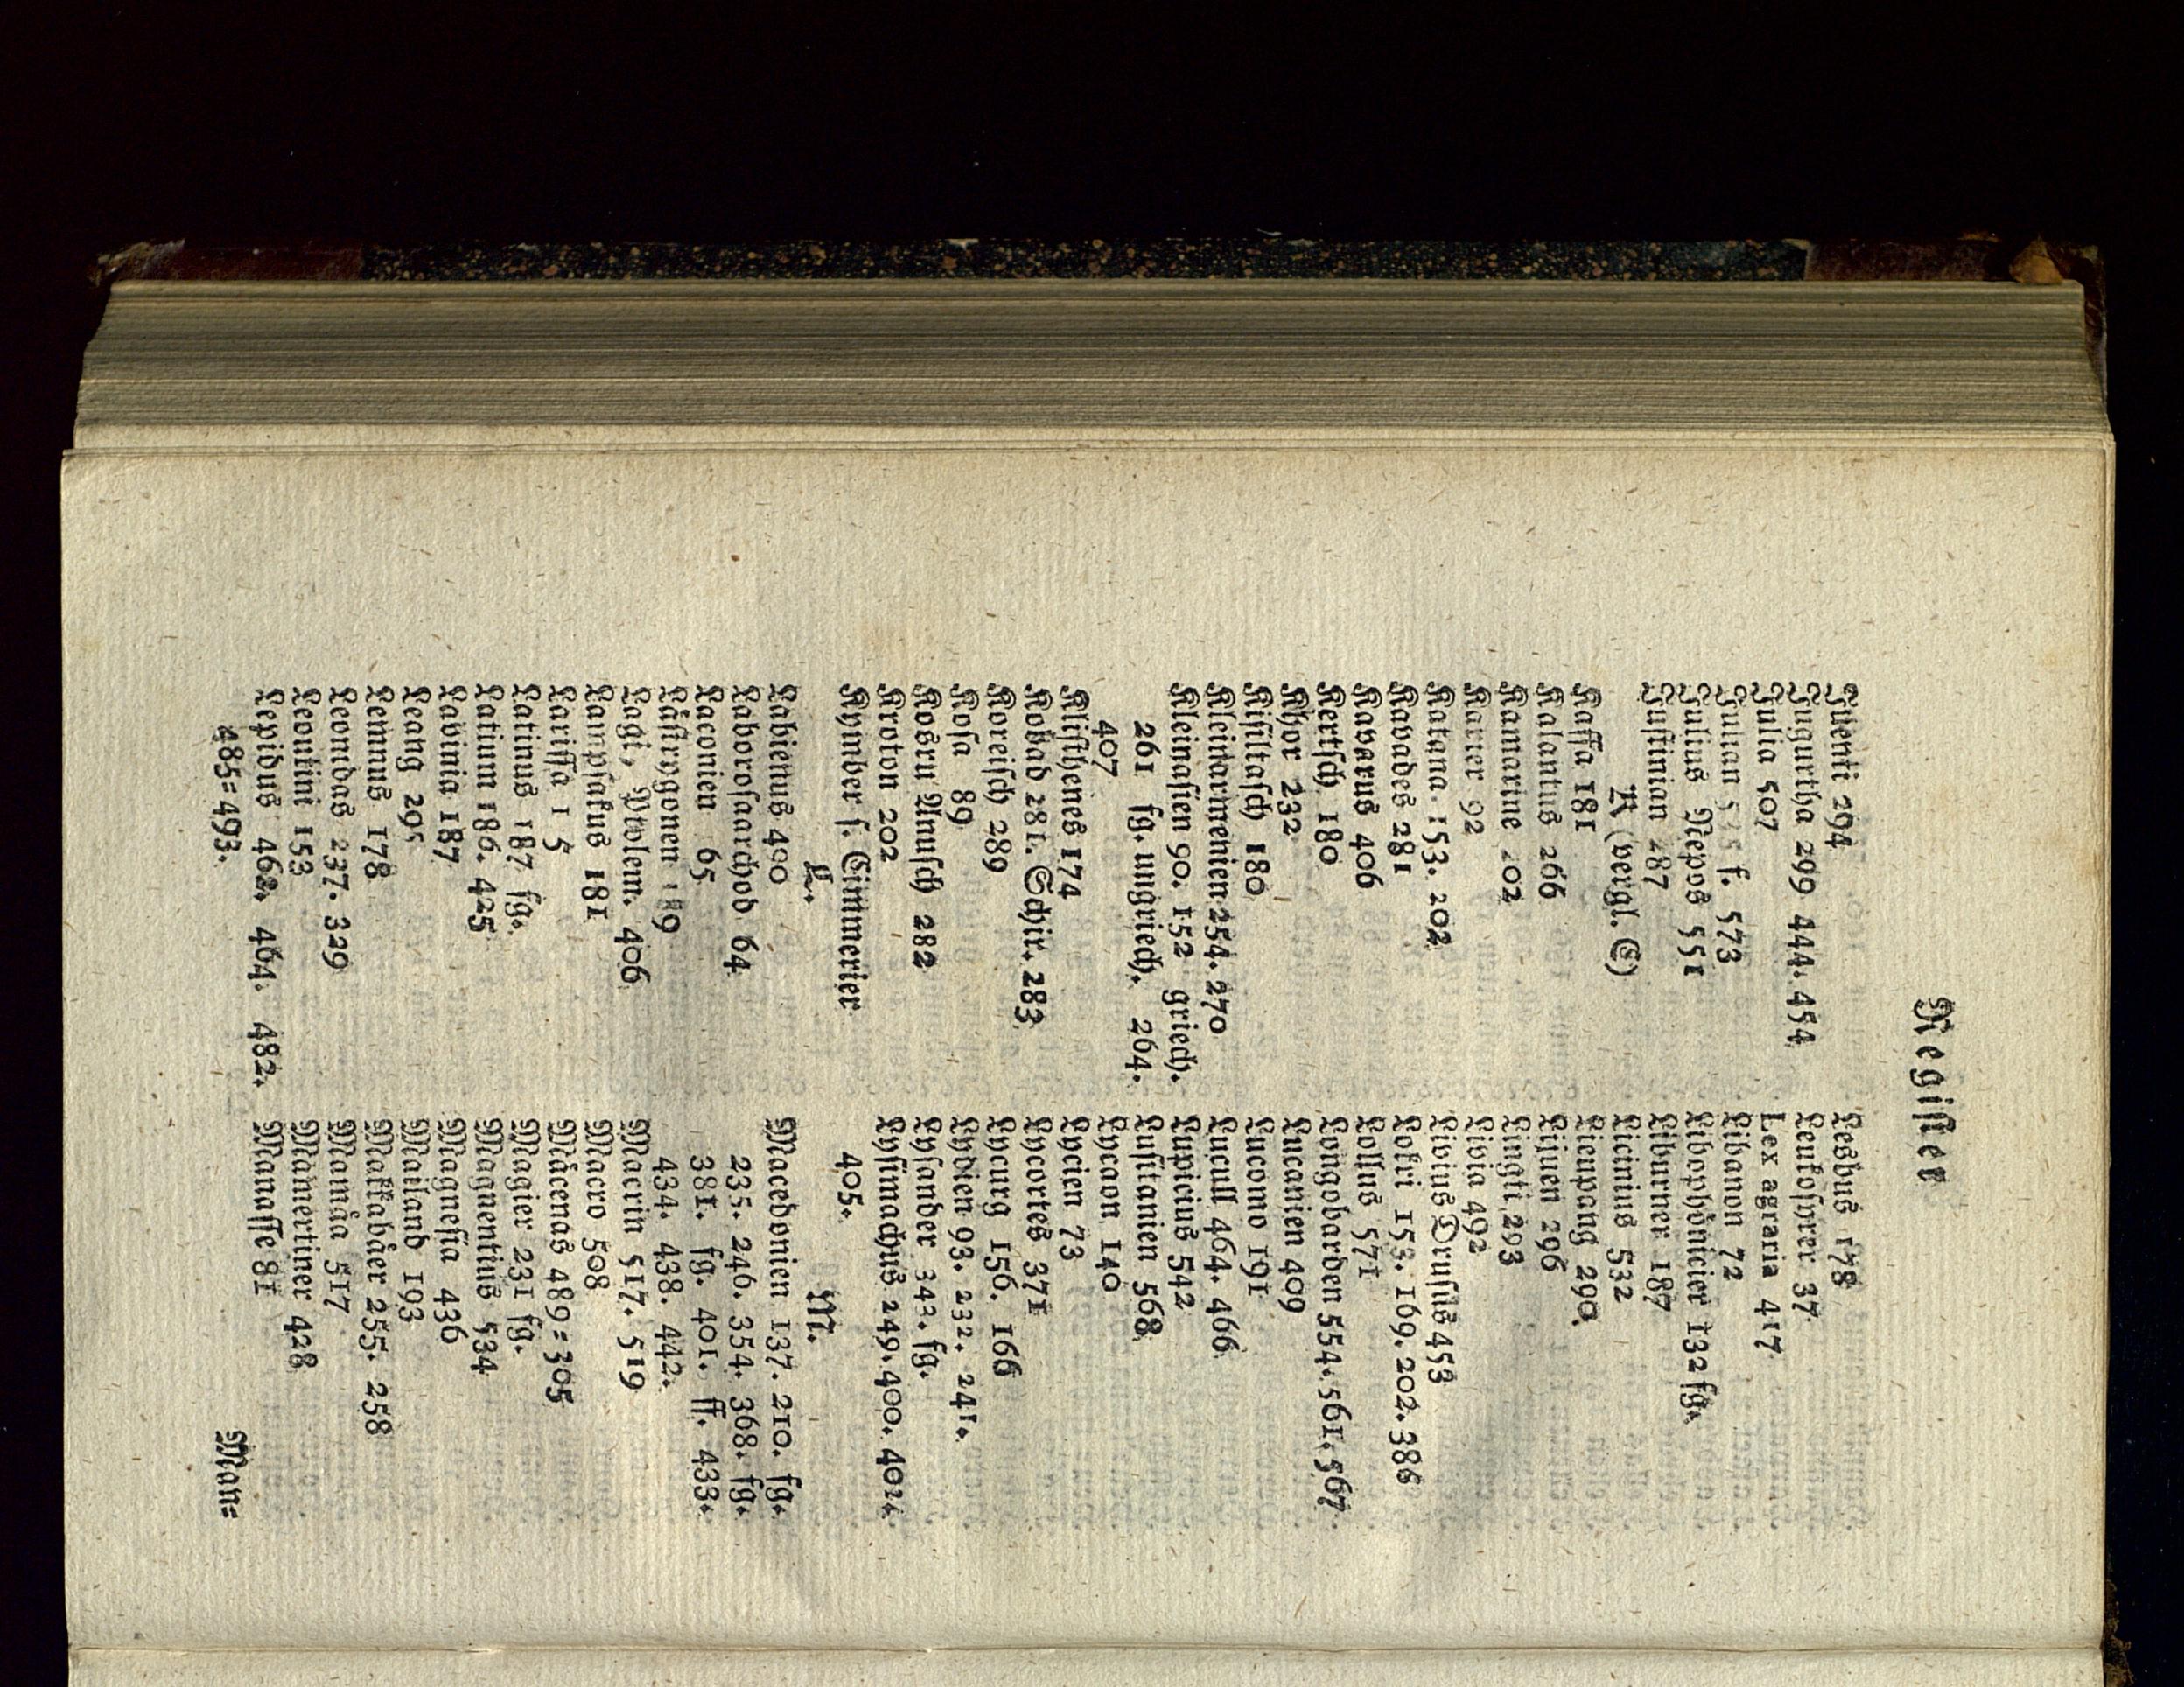 Register
Juenti 294
Jugurtha 299 444. 454
Julia 507
Julian f. 573
Julius Nepos 551
Justinian 287
K (vergl. C)
Kaffa 181
Kalantus 266
Kamarine 202
Karier 92
Katana 153. 202
Kavades 281
Kavarus 406
Kertsch 180
Khor 232
Kisiltasch 180
Kleinarmenien 254. 270
Kleinasien 90. 152 griech.
261 fg. ungriech. 264.
407
Klisthenes 174
Kobad 281. Schir. 283
Koreisch 289
Kosa 89
Kosru Anusch 282
Kroton 202
Kymber s. Cimmerier
L.
Labienus 490
Laborosaarchod 64
Laconien 65
Lästrygonen 189
Lagi, Ptolem. 406
Lampsakus 181
Larissa 1 5
Latinus 187 fg.
Latium 186. 425
Lavinia 187
Leang 295
Lemnus 178
Leonidas 237. 329
Leontini 153
Lepidus 462. 464. 482.
485=493.
Lesbus 178
Leukosyrer 37
Lex agraria 417
Libanon 72
Libophönicier 132 fg.
Liburner 187
Licinius 532
Lieupang 290.
Lijuen 296
Lingti 293
Livia 492
Livius Drusus 453
Lokri 153. 169. 202. 386
Lollus 571
Longobarden 554. 561. 567
Lucanien 409
Lucomo 191
Lucull 464. 466
Lupicius 542
Lusitanien 568
Lycaon 140
Lycien 73
Lycortes 371
Lycurg 156. 166
Lydien 93. 232. 241.
Lysander 343. fg.
Lysimachus 249. 400. 402.
405.
M.
Macedonien 137. 210. fg.
235. 246. 354. 368. fg.
381. fg. 401. ff. 433.
434. 438. 442.
Macrin 517. 519
Macro 508
Mäcenas 489=305
Magier 231 fg.
Magnentius 534
Magnesia 436
Mailand 193
Makkabäer 255. 258
Mamäa 517
Mamertiner 428
Manasse 81
Man=